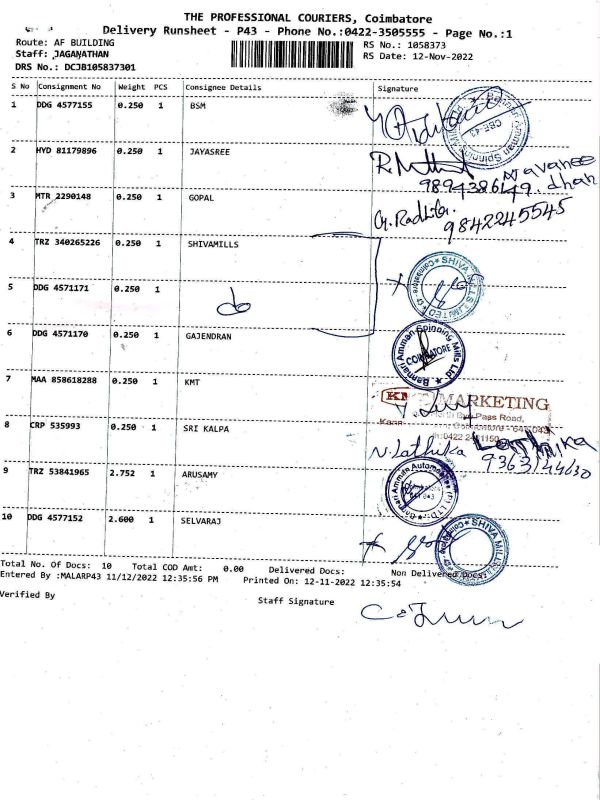 THE PROFESSIONAL COURIERS, Coimbatore
Delivery Runsheet - P43 - Phone No.:0422-3505555 - Page No.:1
Route: AF BUILDING RS No.: 1058373
Staff: JAGANATHAN RS Date: 12-Nov-2022
DRS No.: DCJB105837301
S No Consignment No Weight PCS Consignee Details Signature
1 DDG 4577155 0.250 1 BSM
2 HYD 81179896 0.250 1 JAYASREE
9894386149
3 MTR 2290148 0.250 1 GOPAL G. Radhika
9842245545
4 TRZ 340265226 0.250 1 SHIVAMILLS
SHIVA MILLS LIMITED * Coimbatore
5 DDG 4571171 0.250 1 do
6 DDG 4571170 0.250 1 GAJENDRAN
Bannari Amman Spinning Mills Ltd COIMBATORE
7 MAA 858618288 0.250 1 KMT
MARKETING
Pass Road,
8 CRP 535993 0.250 1 SRI KALPA N. Lathika
9363144630
9 TRZ 53841965 2.752 1 ARUSAMY
10 DDG 4577152 2.600 1 SELVARAJ
SHIVA MILLS
Total No. Of Docs: 10 Total COD Amt: 0.00 Delivered Docs: Non Delivered Docs:
Entered By :MALARP43 11/12/2022 12:35:56 PM Printed On: 12-11-2022 12:35:54
Verified By Staff Signature